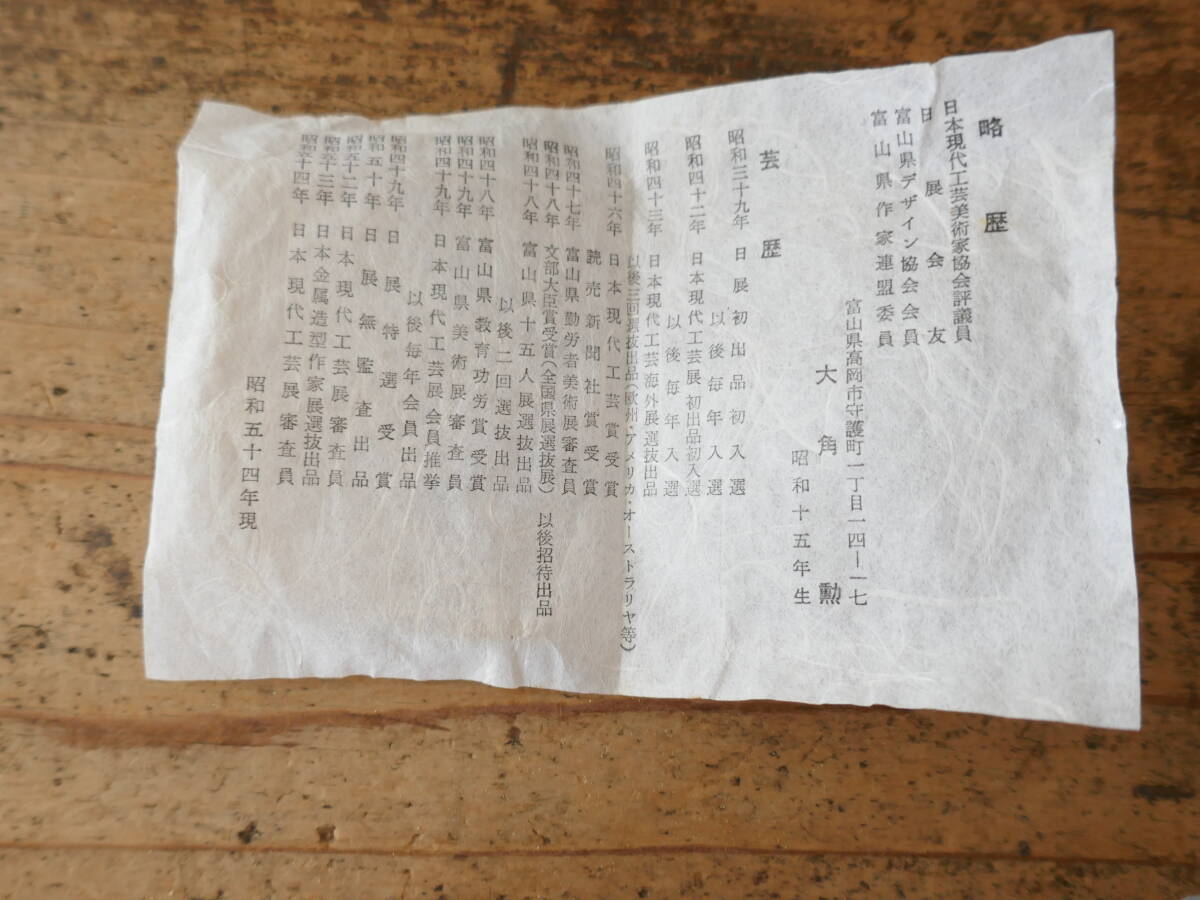 略歴
日本現代工芸美術家協会評議員
日展会友
富山県デザイン協会会員
富山県作家連盟委員
富山県高岡市守護町一丁目一四―一七
大角勲
昭和十五年生
芸歴
昭和三十九年 日展初出品初入選
以後毎年入選
昭和四十二年 日本現代工芸展初出品初入選
以後毎年入選
昭和四十三年 日本現代工芸海外展選抜出品
以後三回選抜出品(欧州・アメリカ・オーストラリヤ等)
昭和四十六年 日本現代工芸賞受賞
読売新聞社賞受賞
昭和四十七年 富山県勤労者美術展審査員
昭和四十八年 文部大臣賞受賞(全国県展選抜展) 以後招待出品
昭和四十八年 富山県十五人展選抜出品
以後二回選抜出品
昭和四十八年 富山県教育功労賞受賞
昭和四十九年 富山県美術展審査員
昭和四十九年 日本現代工芸展会員推挙
以後毎年会員出品
昭和四十九年 日展特選受賞
昭和五十年 日展無監査出品
昭和五十二年 日本現代工芸展審査員
昭和五十三年 日本金属造型作家展選抜出品
昭和五十四年 日本現代工芸展審査員
昭和五十四年現